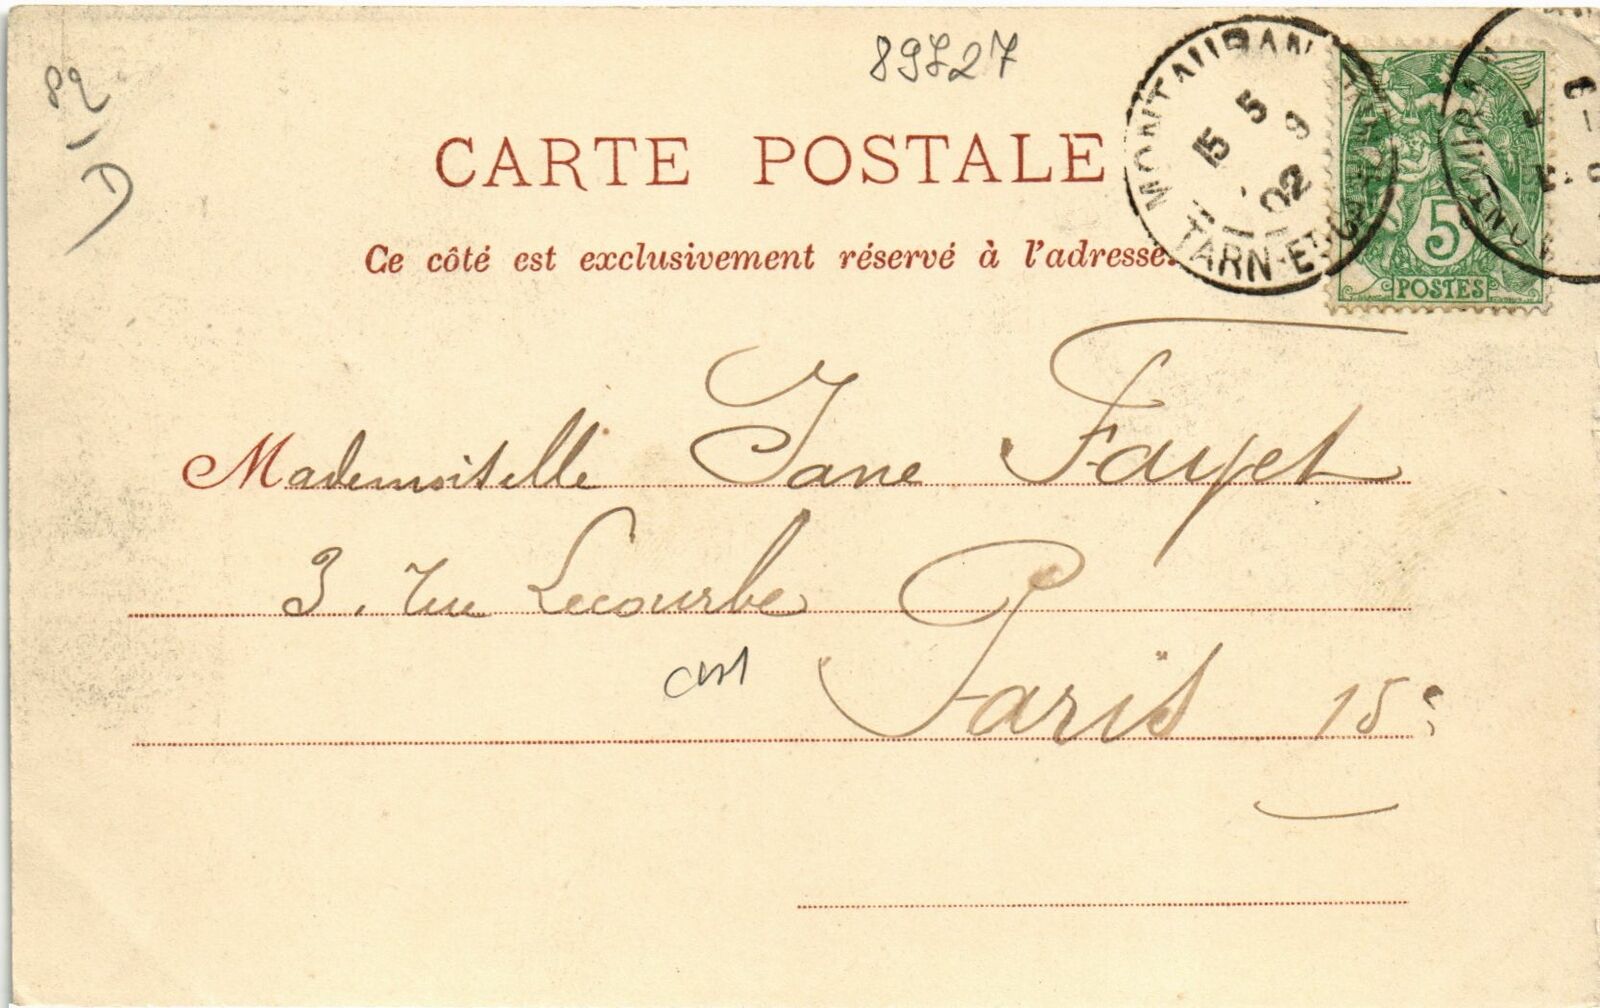 89727
82
CARTE POSTALE
Ce côté est exclusivement réservé à l'adresse.
MONTAUBAN
15 5
9
02
TARN-ET-GARONNE
5
POSTES
Mademoiselle Jane Fayet
3, rue Lecourbe
Paris 15e